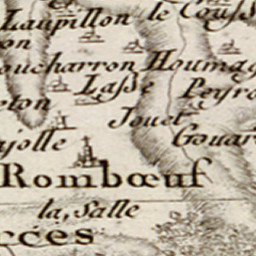 Laupillon le Couss
on
oucharron Houmag
Lasse Peyro
eton
Jouet
ajolle Gouar
Rombœuf
la, Salle
ccés